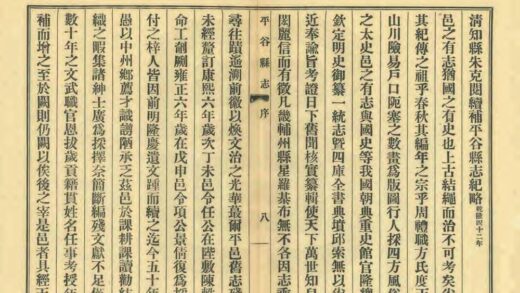 清知縣朱克閱續補平谷縣志紀略 乾隆四十二年
邑之有志猶國之有史也上古結繩而治不可考矣
其紀傳之祖乎春秋其編年之宗乎周禮職方氏度
山川險易戶口阨塞之數畫為版圖行人採四方風俗
之太史邑之有志與國史等我國朝典重史館官隆
欽定明史御纂一統志暨四庫全書典墳邱索無以
近奉諭旨考證日下舊聞核實纂輯使天下萬世知
閎麗信而有徵凡畿補州縣星羅基布無不各因志
平谷縣志 序 八
尋往蹟遞溯前徽以煥文治之光華蕞爾平邑舊志殘
未經釐訂康熙六年歲次丁未邑令任公在陛敷陳
命工劊劂雍正六年歲在戊申邑令項公景倩復為
付之梓人皆因前明隆慶遺文踵而續之迄今五十
愚以中州鄉薦才識謭陋承乏茲邑於課耕課讀勸
織之暇集諸紳士廣為採擇奈簡斷編殘文獻不足
數十年之文武職官恩拔歲貢籍貫姓名任事考授
補而增之至於闕則仍闕以俟後之宰是邑者具經